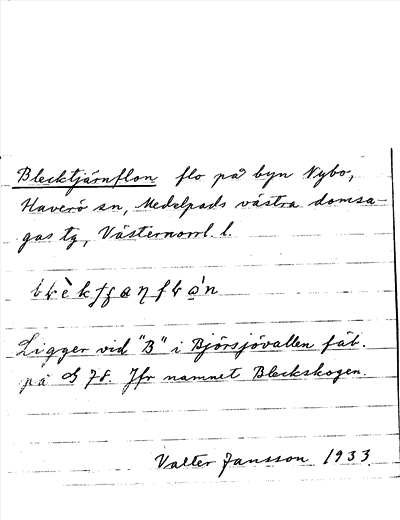 Blecktjärnflon flo på byn Nybo,
Haverö sn, Medelpads västra domsa-
gas tg, Västernorrl. l.
Ligger vid "B" i Björsjövallen fäb.
på G 78. Jfr namnet Bleckskogen.
Valter Jansson 1933